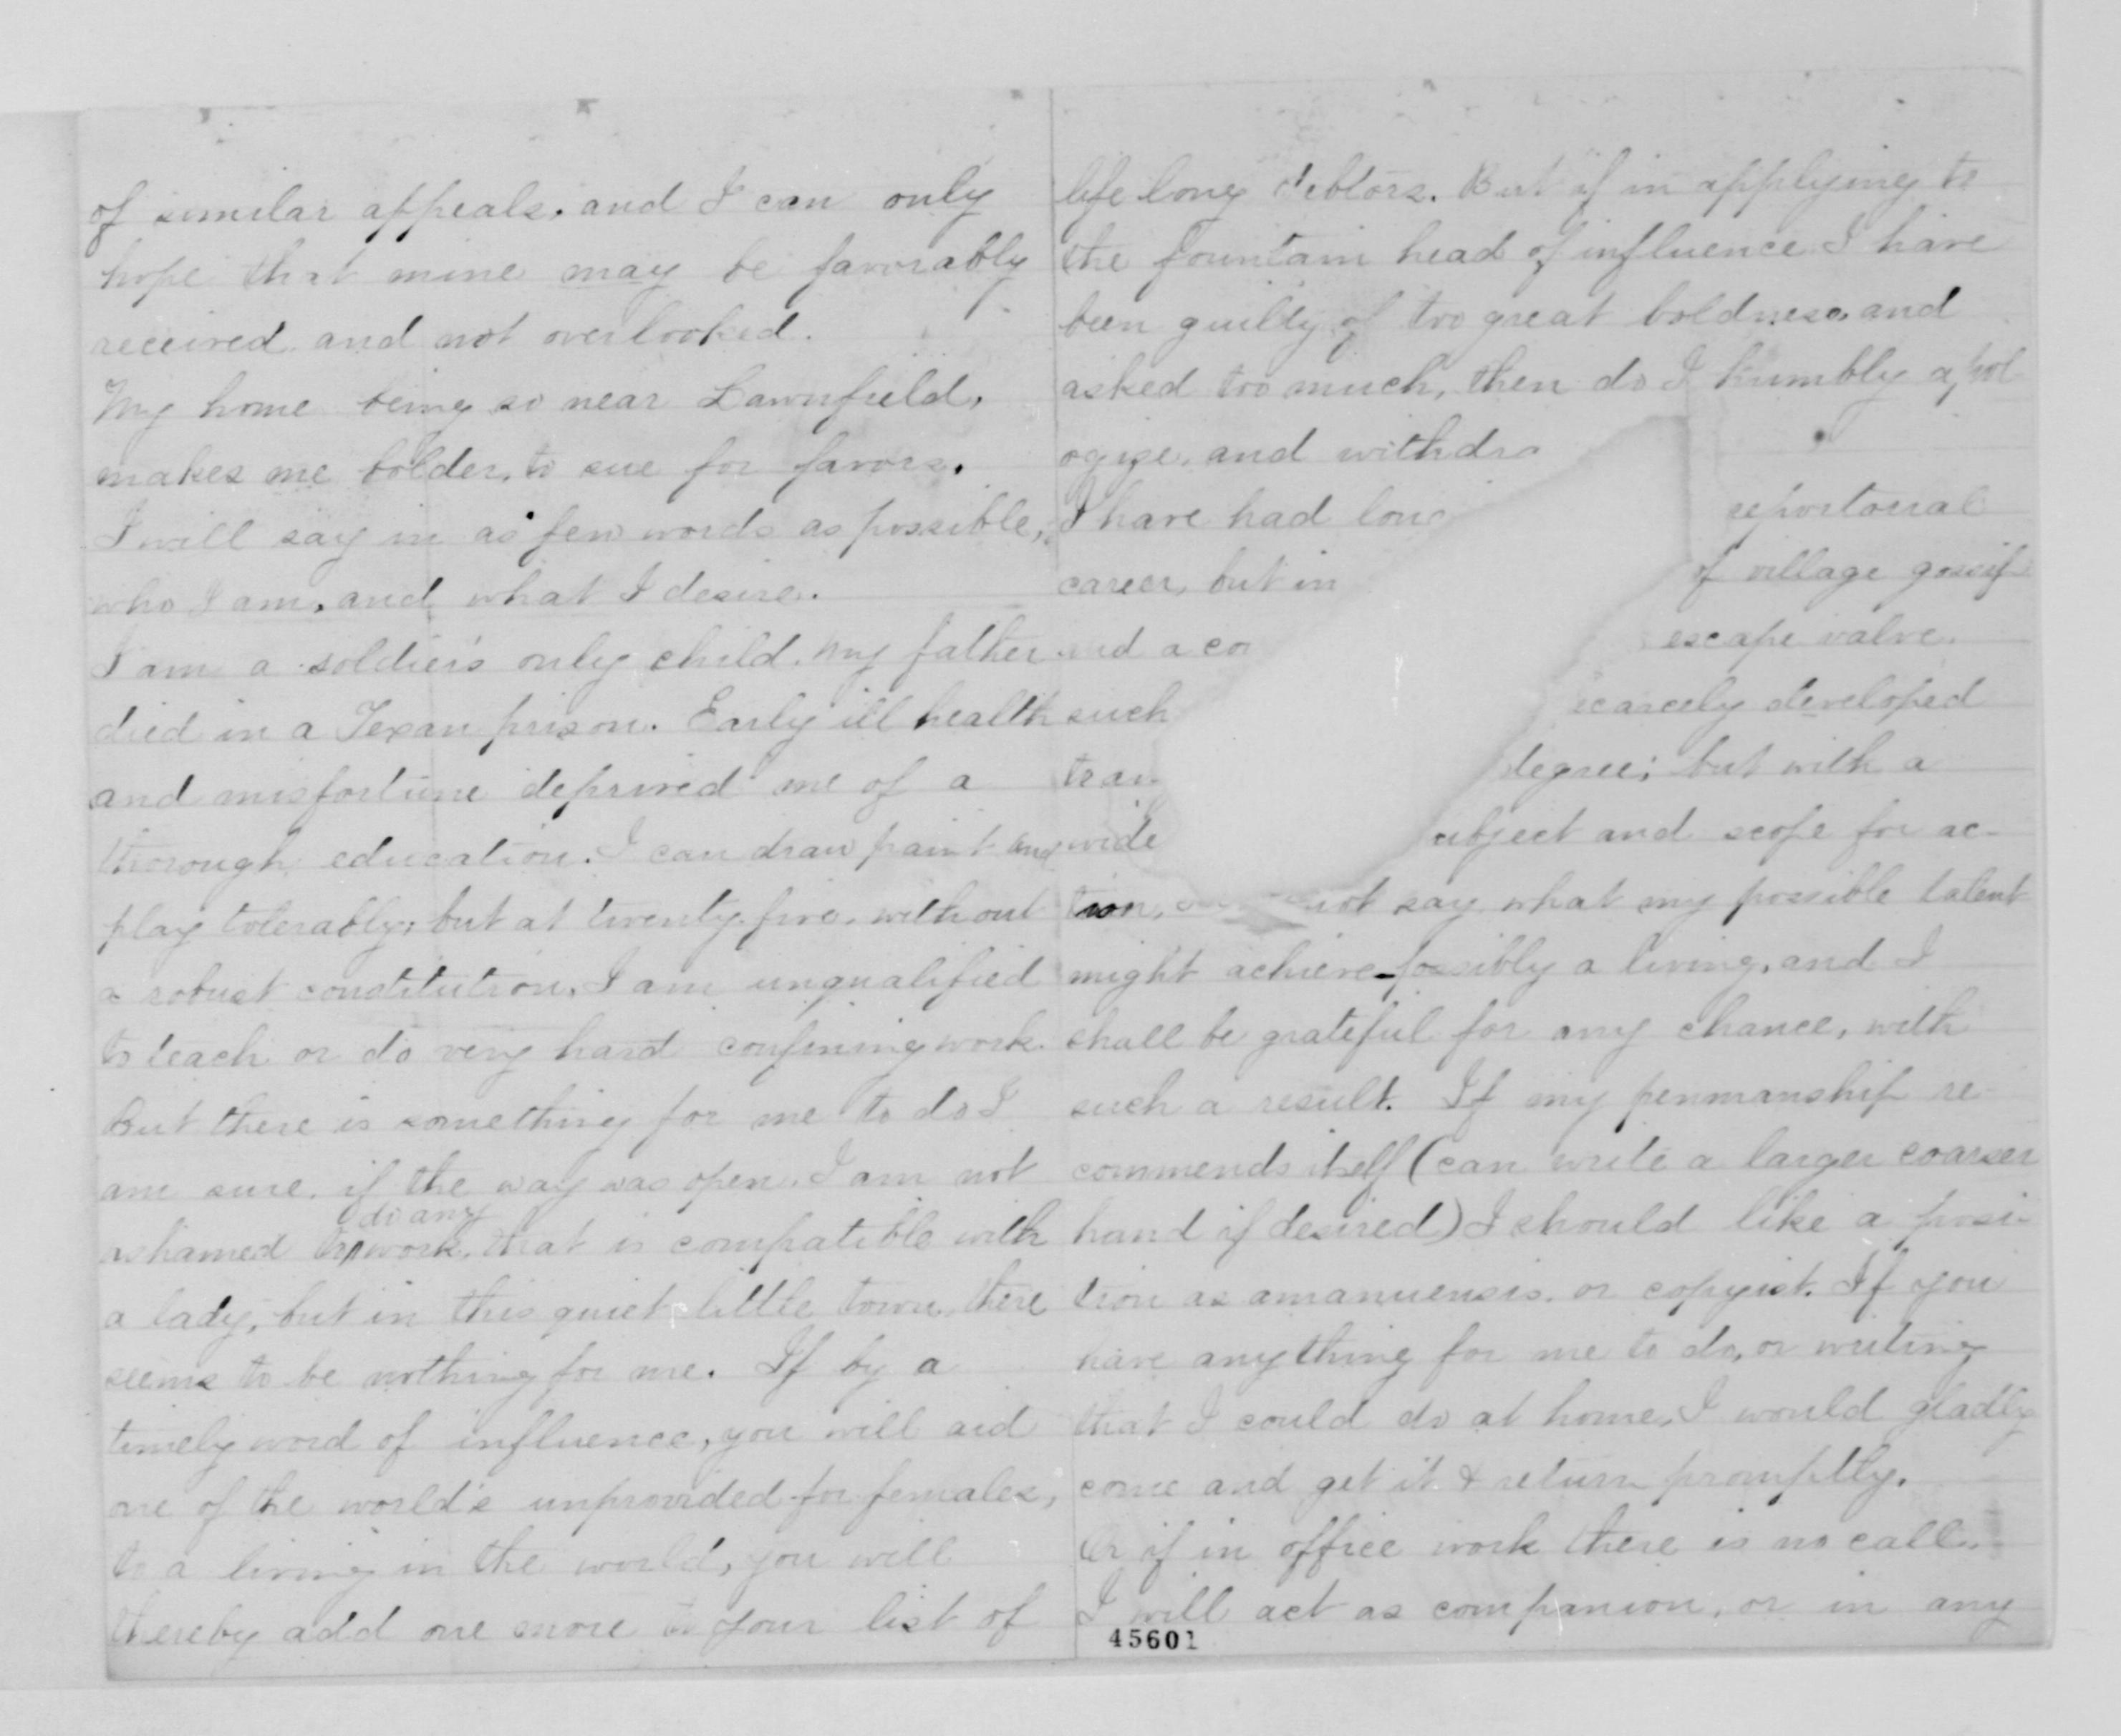 of similar appeals, and I can only
hope that mine may be favorably
received and not overlooked.
My home being so near Lawnfield,
makes me bolder, to sue for favors.
I will say in as few words as possible,
who I am, and what I desire.
I am a soldier's only child. My father
died in a Texan prison. Early ill health
and misfortune deprived me of a
thorough education. I can draw paint and
play tolerably; but at twenty-five, without
a robust constitution, I am unqualified
to teach or do very hard confining work.
But there is something for me to do I
am sure, if the way was open. I am not
do any
ashamed to work, that is compatible with
a lady, but in this quiet little town, there
seems to be nothing for me. If by a
timely word of influence, you will aid
one of the world's unprovided-for females,
to a living in the world, you will
thereby add one more to your list of
life long debtors. But if in applying to
the fountain head of influence I have
been guilty of too great boldness, and
asked too much, then do I humbly apol
ogize, and withdra
I have had long reportorial
career, but in of village gossip
and a co escape valve.
such scarcely developed
tran degree; but with a
wide ubject and scope for ac-
tion, not say what my possible talent
might achieve-possibly a living, and I
shall be grateful for any chance, with
such a result. If my penmanship re-
commends itself (can write a larger coarser
hand if desired) I should like a posi-
tion as amanuensis, or copyist. If you
have anything for me to do, or writing
that I could do at home, I would gladly
come and get it & return promptly.
Or if in office work there is no call,
I will act as companion, or in any
45601